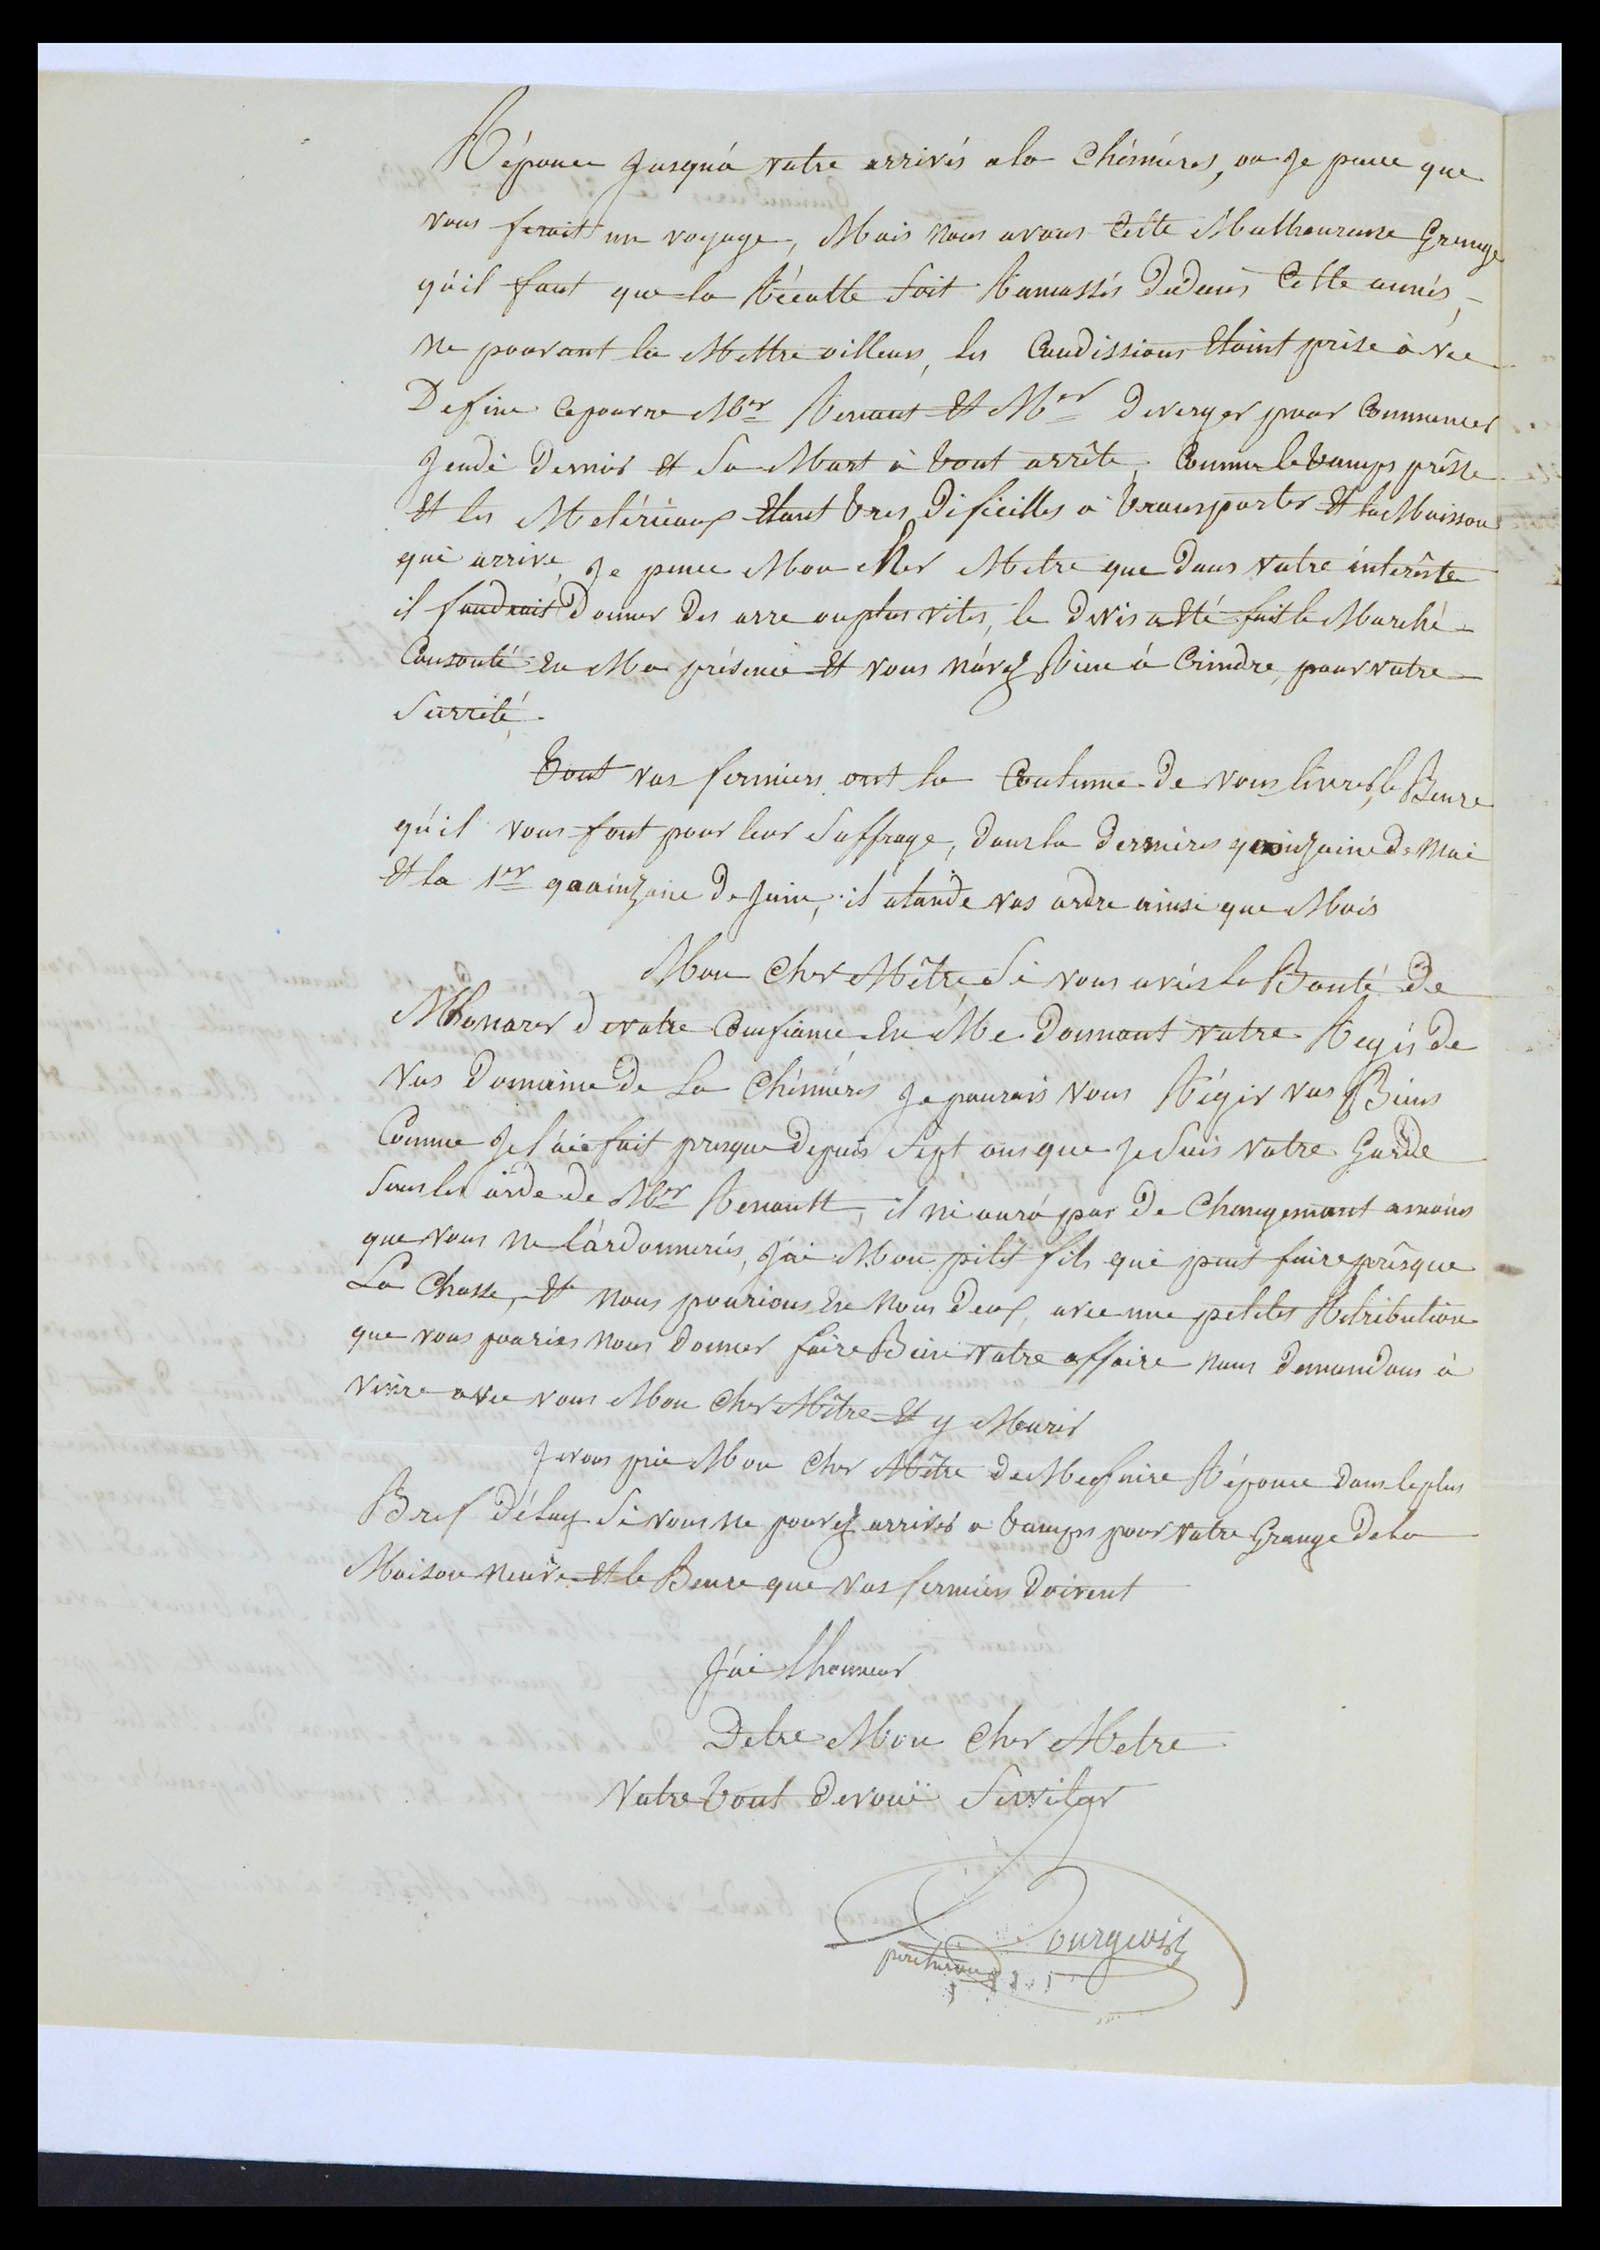 Réponce Jusqu'á votre arrivés a la Chéniéres, ou je pence que
vous ferait un voyage, Mais Nous avons Cette Malheureuse Grange
qu'il faut que la Récolte soit Ramassés Dedans Cette année,
Ne pouvant la Mettre ailleurs, les Condissions Etoint prise à vec
Define Ce pauvre Mr Renaut Et Mr Deverger pour Commencer
Jeudi Dernier et Sa Mort à tout arrêté, Comme le tamps prêsse
Et les Metériaux Etant tres Dificilles a transporter Et la Moisson
qui arrive, Je pence Mon Cher Metre que Dans votre intérêste
il faudrait Donner Des arre au plus vites, le Devis a Eté fait le Marché
Consonté En Ma présence Et vous n'avez Rien á Crindre, pour votre
Surrité,
Tout vos fermiers ont la Coutume De vous livrer le Beure
qu'il vous font pour leur Suffrage, Dans la Dernieres quinzaine De Mai
Et la 1er quainzaine De Juin, il atande vos ordre ainsi que Mois
Mon Cher Mêtre, Si vous avés la Bonté De
M'honorer De votre Confiance En Me Donnant votre Regis De
vos Domaine De La Chéniéres Je pourais vous Régir vos Biens
Comme Je l'ai fait presque Depuis Sept ans que Je Suis votre Garde
Sous les orde De Mr Renault, il ni aurá pas De Changemant amoins
que vous Ne l'árdonneriés, J'ai Mon pitit fils qui peut faire prêsque
La Chasse, Et Nous pourions En Nous Deux, avec une petites Rétribution
que vous pouries Nous Donner faire Bien votre affaire Nous Demandons à
vivre avec vous Mon Cher Mêtre Et y Mourir
Je vous prie Mon Cher Mêtre De Me faire Réponce Dans le plus
Bref Délay Si vous Ne pouvez arriver a tamps pour votre Grange De La
Maison Neuve Et le Beure que vos fermiers Doivent
J'ai Lhonneur
Detre Mon Cher Metre
Votre tout Devoué Serviteur
Bourgeois